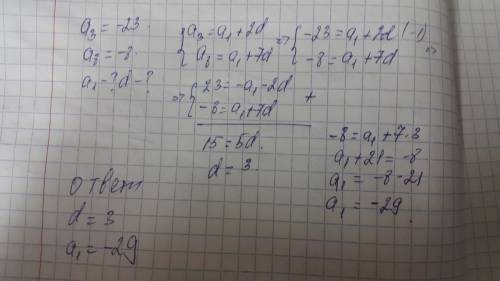 a₃ = -23.
a₈ = -8.
a₁ - ? d - ?
{ a₃ = a₁ + 2d
a₈ = a₁ + 7d
=> { -23 = a₁ + 2d | (-1)
-8 = a₁ + 7d
=>
=> { 23 = -a₁ - 2d
-8 = a₁ + 7d
+
15 = 5d.
d = 3.
-8 = a₁ + 7·3
a₁ + 21 = -8
a₁ = -8-21
a₁ = -29.
ответ
d = 3
a₁ = -29